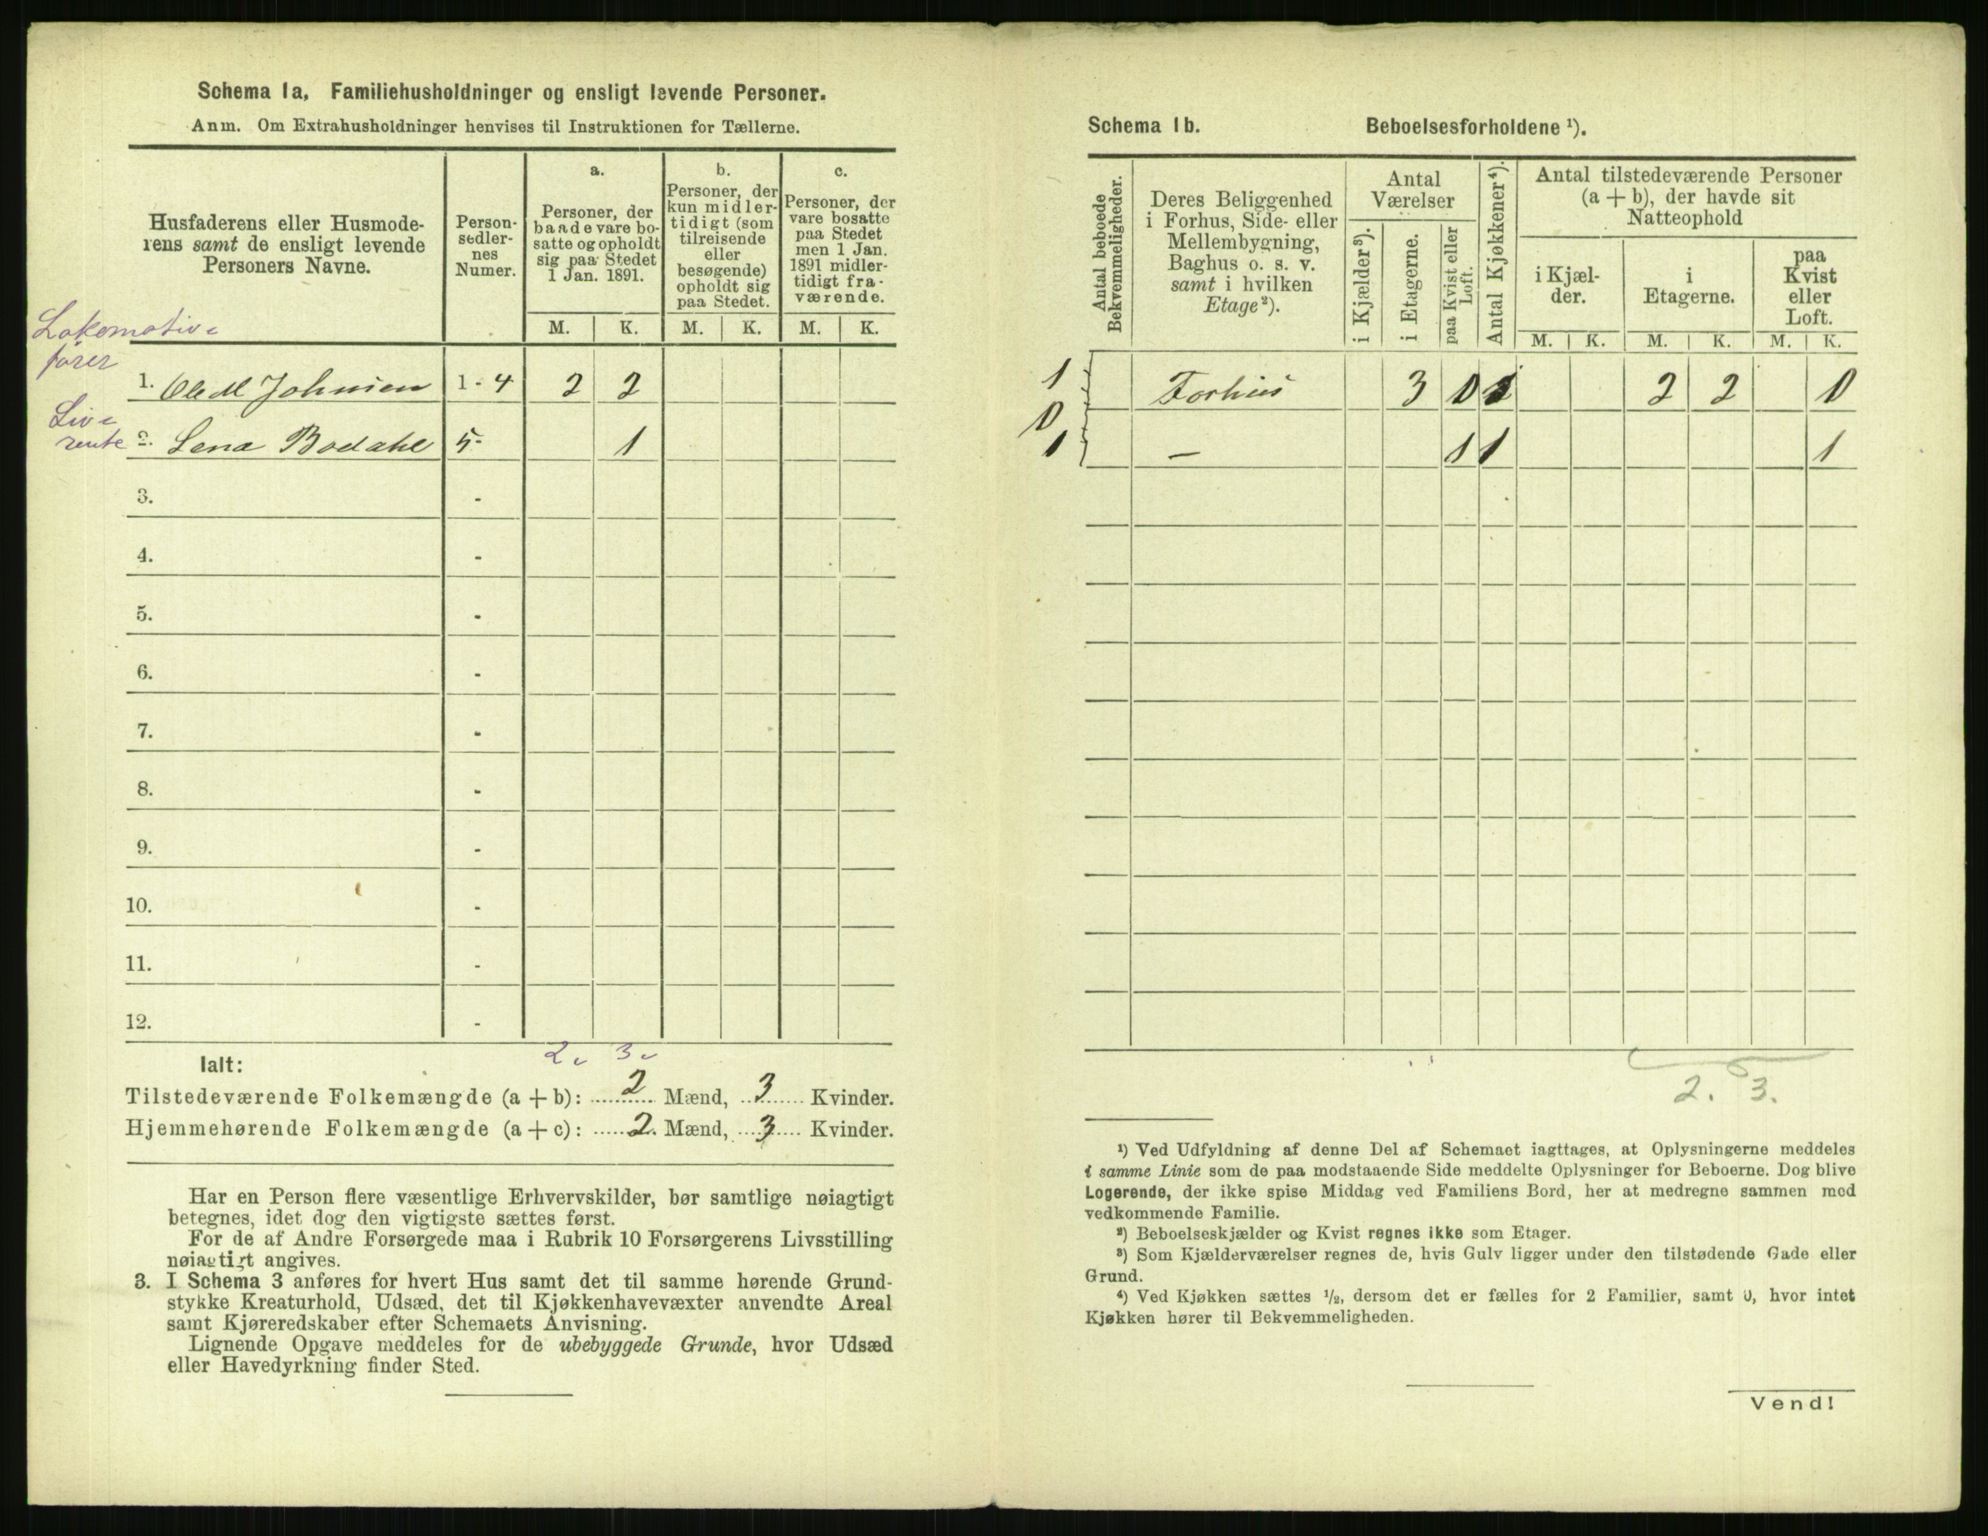 Schema 1a, Familiehusholdninger og ensligt levende Personer.
Anm. Om Extrahusholdninger henvises til Instruktionen for Tællerne.
Husfaderens eller Husmode-
rens samt de ensligt levende
Personers Navne.
Person-
sedler-
nes
Numer.
a.
Personer, der
baade vare bo-
satte og opholdt
sig paa Stedet
1 Jan. 1891.
b.
Personer, der
kun midler-
tidigt (som
tilreisende
eller
besøgende)
opholdt sig
paa Stedet.
c.
Personer, der
vare bosatte
paa Stedet
men 1 Jan.
1891 midler-
tidigt fra-
værende.
M. K. M. K. M. K.
Lokomotiv-
fører
1. Ole M Johnsen 1 - 4 2 2
Liv-
rente
2. Lena Bodahl 5 - 1
3. -
4. -
5. -
6. -
7. -
8. -
9. -
10. -
11. -
12. -
2. 3.
Ialt:
Tilstedeværende Folkemængde (a + b): 2 Mænd, 3 Kvinder.
Hjemmehørende Folkemængde (a + c): 2. Mænd, 3 Kvinder.
Har en Person flere væsentlige Erhvervskilder, bør samtlige nøiagtigt
betegnes, idet dog den vigtigste sættes først.
For de af Andre Forsørgede maa i Rubrik 10 Forsørgerens Livsstilling
nøiagtigt angives.
3. I Schema 3 anføres for hvert Hus samt det til samme hørende Grund-
stykke Kreaturhold, Udsæd, det til Kjøkkenhavevæxter anvendte Areal
samt Kjøreredskaber efter Schemaets Anvisning.
Lignende Opgave meddeles for de ubebyggede Grunde, hvor Udsæd
eller Havedyrkning finder Sted.
Schema 1b. Beboelsesforholdene ¹).
Antal beboede
Bekvemmeligheder.
Deres Beliggenhed
i Forhus, Side- eller
Mellembygning,
Baghus o. s. v.
samt i hvilken
Etage²).
Antal
Værelser
i Kjælder³).
i Etagerne.
paa Kvist eller
Loft.
Antal Kjøkkener⁴).
Antal tilstedeværende Personer
(a + b), der havde sit
Natteophold
i Kjæl-
der.
i
Etagerne.
paa
Kvist
eller
Loft.
M. K. M. K. M. K.
1 Forhus 3 0 1 2 2 0
0
1 — 1 1 1
2. 3.
¹) Ved Udfyldning af denne Del af Schemaet iagttages, at Oplysningerne meddeles
i samme Linie som de paa modstaaende Side meddelte Oplysninger for Beboerne. Dog blive
Logerende, der ikke spise Middag ved Familiens Bord, her at medregne sammen med
vedkommende Familie.
²) Beboelseskjælder og Kvist regnes ikke som Etager.
³) Som Kjælderværelser regnes de, hvis Gulv ligger under den tilstødende Gade eller
Grund.
⁴) Ved Kjøkken sættes ½, dersom det er fælles for 2 Familier, samt 0, hvor intet
Kjøkken hører til Bekvemmeligheden.
Vend!